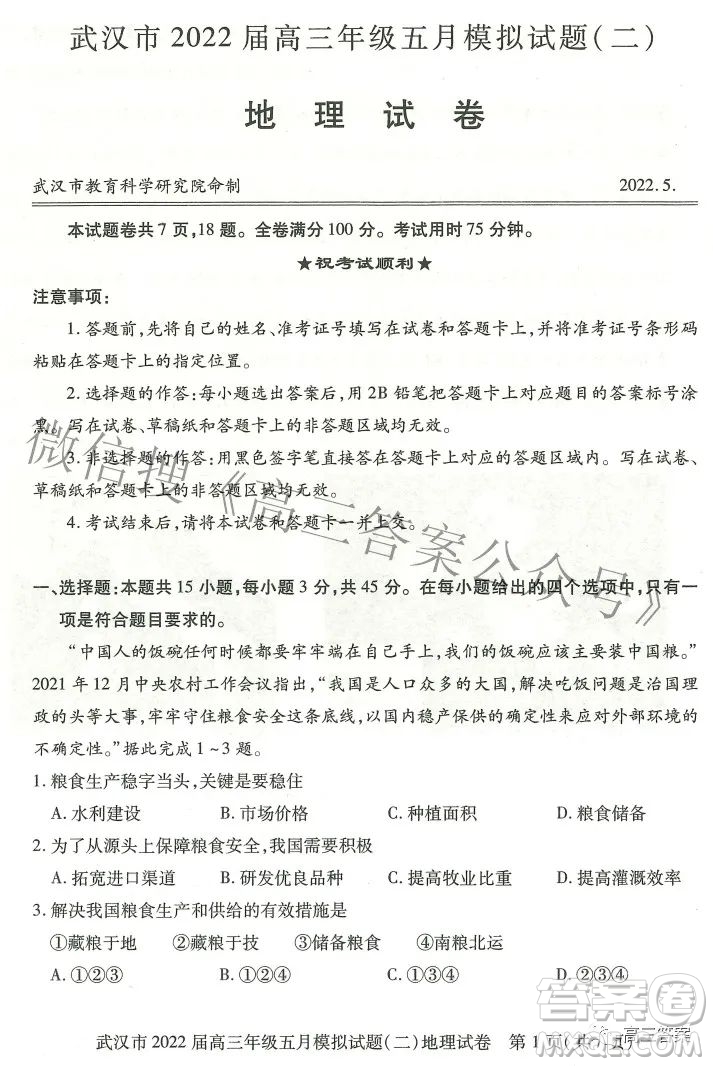 武汉市 2022 届高三年级五月模拟试题(二)
地 理 试 卷
武汉市教育科学研究院命制 2022.5.
本试题卷共7页,18题。全卷满分100分。考试用时75分钟。
★祝考试顺利★
注意事项:
1. 答题前,先将自己的姓名、准考证号填写在试卷和答题卡上,并将准考证号条形码
粘贴在答题卡上的指定位置。
2. 选择题的作答:每小题选出答案后,用 2B 铅笔把答题卡上对应题目的答案标号涂
黑。写在试卷、草稿纸和答题卡上的非答题区域均无效。
3. 非选择题的作答:用黑色签字笔直接答在答题卡上对应的答题区域内。写在试卷、
草稿纸和答题卡上的非答题区域均无效。
4. 考试结束后,请将本试卷和答题卡一并上交。
微信搜《高三答案公众号》
一、选择题:本题共 15 小题,每小题 3 分,共 45 分。在每小题给出的四个选项中,只有一
项是符合题目要求的。
“中国人的饭碗任何时候都要牢牢端在自己手上,我们的饭碗应该主要装中国粮。”
2021 年 12 月中央农村工作会议指出,“我国是人口众多的大国,解决吃饭问题是治国理
政的头等大事,牢牢守住粮食安全这条底线,以国内稳产保供的确定性来应对外部环境的
不确定性。”据此完成 1~3 题。
1. 粮食生产稳字当头,关键是要稳住
A. 水利建设 B. 市场价格 C. 种植面积 D. 粮食储备
2. 为了从源头上保障粮食安全,我国需要积极
A. 拓宽进口渠道 B. 研发优良品种 C. 提高牧业比重 D. 提高灌溉效率
3. 解决我国粮食生产和供给的有效措施是
①藏粮于地 ②藏粮于技 ③储备粮食 ④南粮北运
A. ①②③ B. ①②④ C. ①③④ D. ②③④
武汉市 2022 届高三年级五月模拟试题(二)地理试卷 第 1 页(共 7 页)
高三答案